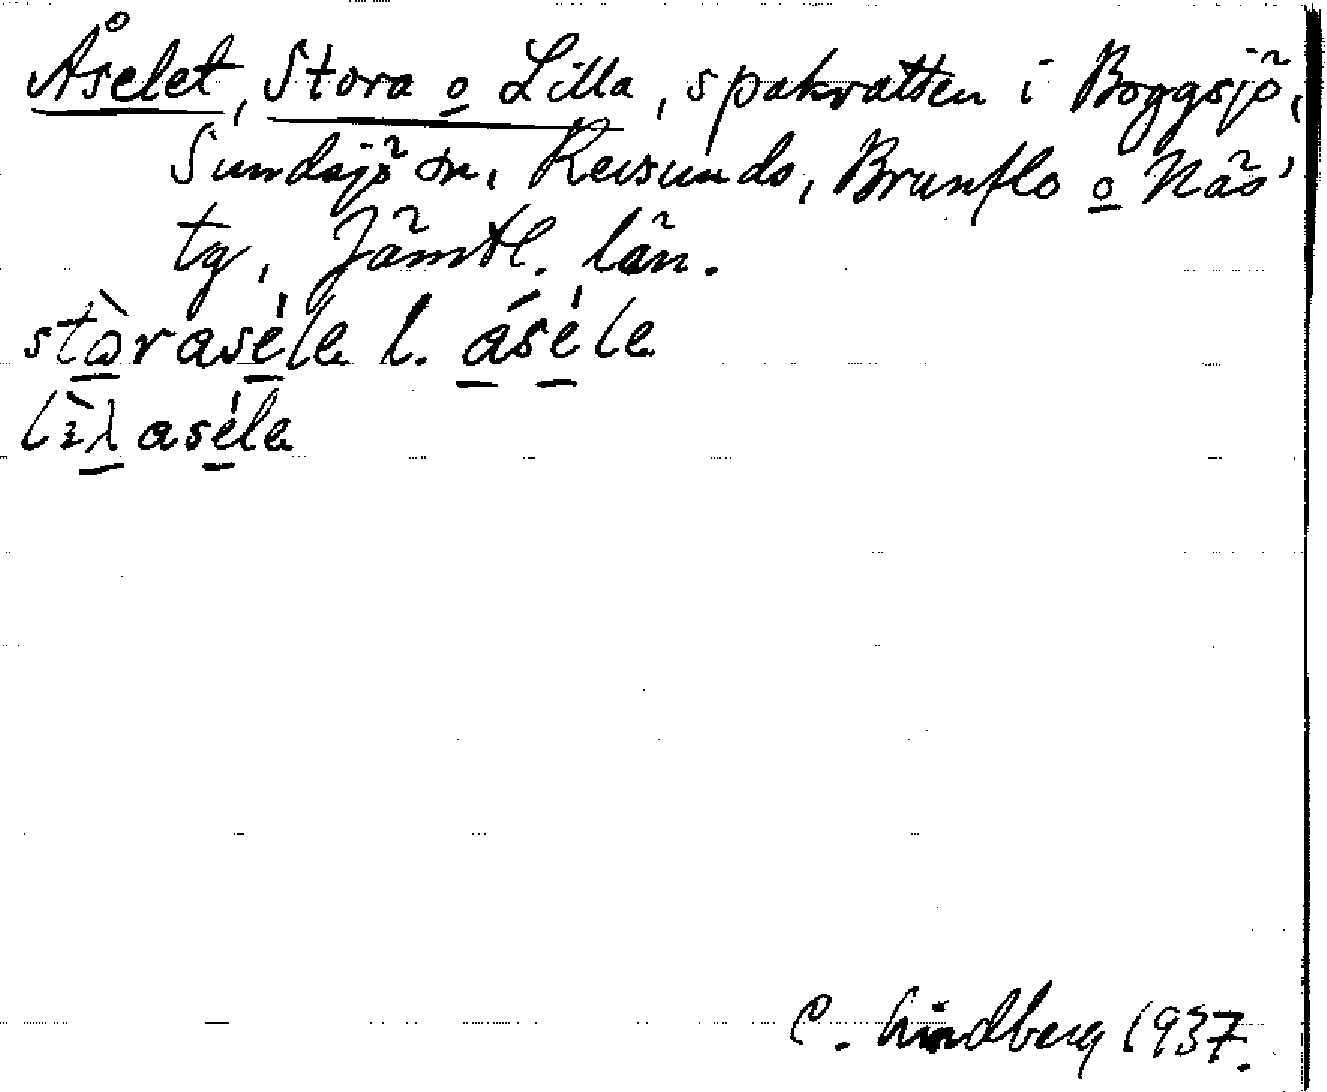 Åselet, Stora o Lilla, spakvatten i Boggsjö,
Sundsjön, Revsunds, Brunflo o Näs'
tg, Jämtl. län.
stòraséle l. áséle
lìλaséle
C. Lindberg 1937.